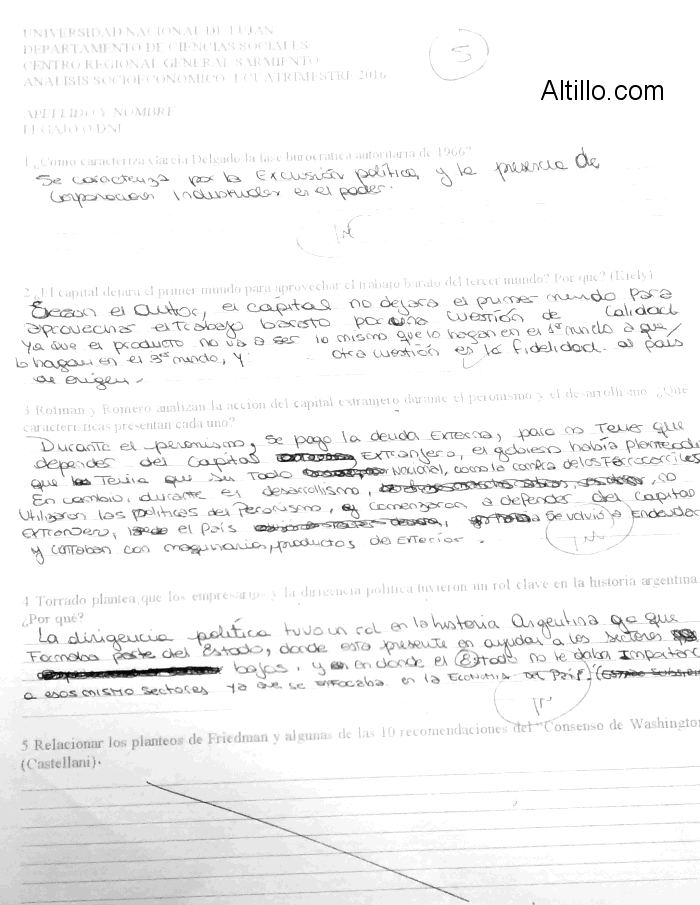 UNIVERSIDAD NACIONAL DE LUJAN
DEPARTAMENTO DE CIENCIAS SOCIALES
CENTRO REGIONAL GENERAL SARMIENTO
ANALISIS SOCIOECONOMICO I CUATRIMESTRE 2016
5
Altillo.com
APELLIDO Y NOMBRE
LEGAJO O DNI
1 ¿Cómo caracteriza García Delgado la fase burocrática autoritaria de 1966?
Se caracteriza por la Exclusión política, y la presencia de
Corporaciones Industriales en el poder.
2 ¿El capital dejara el primer mundo para aprovechar el trabajo barato del tercer mundo? Por que? (Kiely)
Según el autor, el capital no dejara el primer mundo para
aprovechar el trabajo barato por una cuestión de calidad
ya que el producto no va a ser lo mismo que lo hagan en el 1er mundo a que
lo hagan en el 3er mundo, y otra cuestión es la fidelidad al país
de origen.
3 Rofman y Romero analizan la acción del capital extranjero durante el peronismo y el desarrollismo. ¿Que
características presentan cada uno?
Durante el peronismo, se pago la deuda Externa, para no Tener que
depender del Capital Extranjero, el gobierno había planteado
que Tenia que su Todo Nacional, como la compra de los Ferrocarriles
En cambio, durante el desarrollismo, no
Utilizaron las políticas del Peronismo, y comenzaron a defender del Capital
Extranjero, el País Se volvió a Endeudar
y contaban con maquinarias, productos del exterior.
4 Torrado plantea que los empresarios y la dirigencia política tuvieron un rol clave en la historia argentina.
¿Por qué?
La dirigencia política tuvo un rol en la historia Argentina ya que
Formaba parte del Estado, donde esta presente en ayudar a los sectores
bajos, y en donde el Estado no le daba Importanc
a esos mismo sectores ya que se enfocaba en la Economía del País
5 Relacionar los planteos de Friedman y algunas de las 10 recomendaciones del "Consenso de Washington
(Castellani).